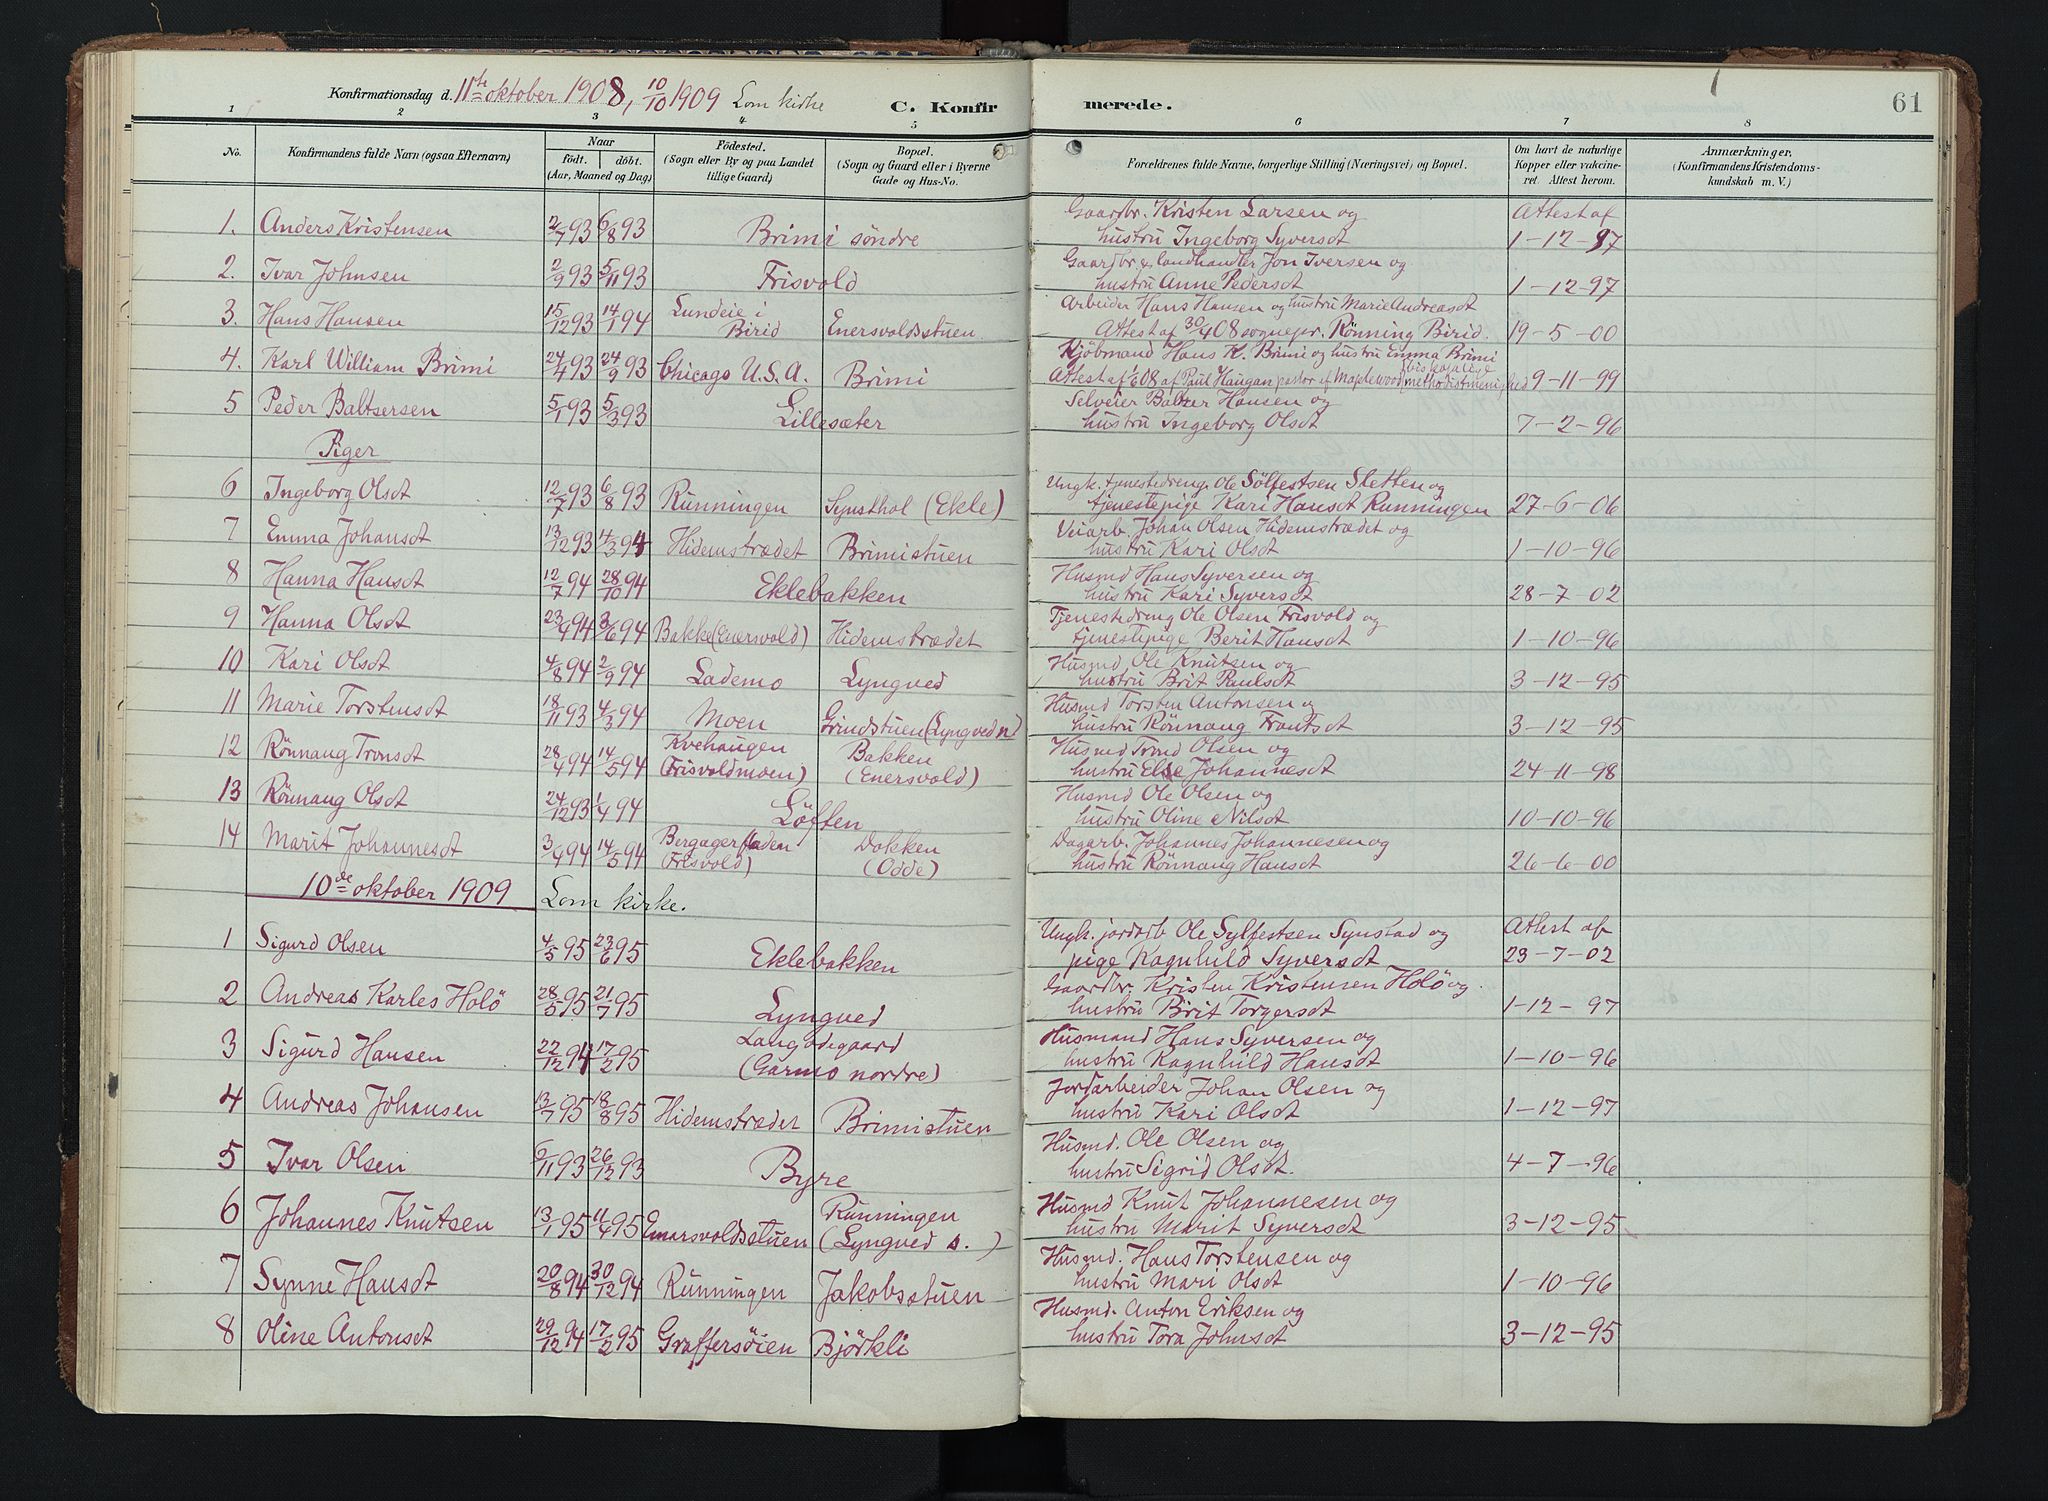 Konfirmationsdag d. 11te oktober 1908, 10/10 1909 Lom kirke
C. Konfirmerede.
61
1 2 3 4 5 6 7 8
No.
Konfirmandens fulde Navn (ogsaa Efternavn)
Naar
födt. döbt.
(Aar, Maaned og Dag)
Födested.
(Sogn eller By og paa Landet
tillige Gaard)
Bopæl.
(Sogn og Gaard eller i Byerne
Gade og Hus-No.
Forældrenes fulde Navne, borgerlige Stilling (Næringsvei) og Bopæl.
Om havt de naturlige
Kopper eller vakcine-
ret. Attest herom.
Anmærkninger,
(Konfirmandens Kristendoms-
kundskab m. V.)
1. Anders Kristensen 2/7 93 6/8 93 Brimi söndre Gaardbr. Kristen Larsen og Attest af
hustru Ingeborg Syversdt 1-12-97
2. Ivar Johnsen 2/9 93 5/11 93 Frisvold Gaardbr & landhandler Jon Iversen og
hustru Anne Pedersdt 1-12-97
3. Hans Hansen 15/12 93 14/1 94 Lundeie i Arbeider Hans Hansen og hustru Marie Andreasdt
Birid Enersvoldsstuen Attest af 30/4 08 sognepr. Rönning Birid. 19-5-00
4. Karl William Brimi 24/4 93 24/9 93 Chicago U.S.A. Brimi Kjöbmand Hans K. Brimi og hustru Emma Brimi
Attest af 1/6 08 af Paul Haugan pastor af Maplewood biskopalige methodistmenighed 9-11-99
5 Peder Baltsersen 5/1 93 5/3 93 Lillesæter Selveier Baltzer Hansen og
hustru Ingeborg Olsdt 7-2-96
Piger
6 Ingeborg Olsdt 12/7 93 6/8 93 Runningen Synsthol (Ekle) Ungk. tjenestedreng Ole Sölfestsen Sletten og
tjenestepige Kari Hansdt Runningen 27-6-06
7 Emma Johansdt 13/12 93 4/3 94 Hidemstrædet Brimistuen Veiarb. Johan Olsen Hidemstrædet og
hustru Kari Olsdt 1-10-96
8 Hanna Hansdt 12/7 94 28/10 94 Eklebakken Husmd Hans Syversen og
hustru Kari Syversdt 28-7-02
9 Hanna Olsdt 23/4 94 3/6 94 Bakke (Enersvold) Hidemstrædet Tjenestedreng Ole Olsen Frisvold og
tjenestepige Berit Hansdt 1-10-96
10 Kari Olsdt 4/8 94 2/9 94 Lademo Lyngved Husmd. Ole Knutsen og
hustru Brit Paulsdt 3-12-95
11 Marie Torstensdt 18/11 93 4/3 94 Moen Grindstuen (Lyngved n) Husmd Torsten Antonsen og
hustru Rönnaug Frantsdt 3-12-95
12 Rönnaug Tronsdt 28/4 94 14/5 94 Kvehaugen Bakken Husmd Trond Olsen og
(Frisvoldmoen) (Enersvold) hustru Else Johannesdt 24-11-98
13 Rönnaug Olsdt 24/12 93 1/4 94 Löften Husmd Ole Olsen og
hustru Oline Nilsdt 10-10-96
14 Marit Johannesdt 3/4 94 14/5 94 Bergagerfladen Dokken Dagarb. Johannes Johannesen og
(Frisvold) (Odde) hustru Rönnaug Hansdt 26-6-00
10de oktober 1909 Lom kirke.
1 Sigurd Olsen 4/5 95 23/6 95 Eklebakken Ungk. jordarb Ole Sylfestsen Synstad og Attest af
pige Ragnhild Syversdt 23-7-02
2 Andreas Karles Holö 28/5 95 21/7 95 Lyngved Gaardbr. Kristen Kristensen Holö og
hustru Brit Torgersdt 1-12-97
3 Sigurd Hansen 22/12 94 17/2 95 Langödegaard Husmand Hans Syversen og
(Garmo nordre) hustru Ragnhild Hansdt 1-10-96
4 Andreas Johansen 13/7 95 18/8 95 Hidemstrædet Brimistuen Jordarbeider Johan Olsen og
hustru Kari Olsdt 1-12-97
5 Ivar Olsen 6/11 93 26/12 93 Byre Husmd. Ole Olsen og
hustru Sigrid Olsdt. 4-7-96
6 Johannes Knutsen 13/1 95 95 Enarsvoldsstuen Runningen Husmd Knut Johannesen og
(Lyngved s.) hustru Marit Syversdt 3-12-95
7 Synne Hansdt 20/8 94 30/12 94 Runningen Jakobsstuen Husmd. Hans Torstensen og
hustru Mari Olsdt 1-10-96
8 Oline Antonsdt 29/12 94 17/2 95 Graffersöien Björkli Husmd. Anton Eriksen og
hustru Tora Johnsdt 3-12-95